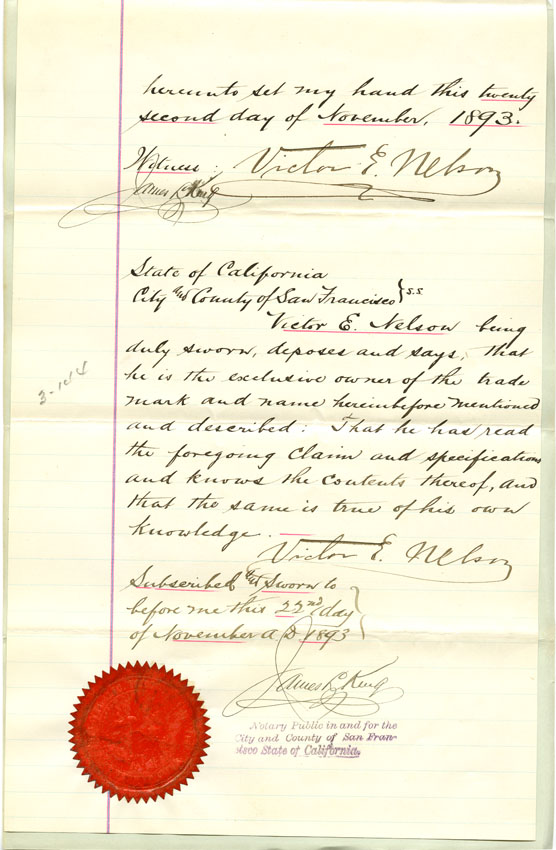 hereunto set my hand this twenty
second day of November, 1893.
Witness: Victor E. Nelson
James L. King
State of California
City and County of San Francisco } s.s
Victor E. Nelson being
duly sworn, deposes and says, that
he is the exclusive owner of the trade
mark and name hereinbefore mentioned
and described: That he has read
the foregoing Claim and specifications
and knows the contents thereof, and
that the same is true of his own
knowledge.
Victor E. Nelson
Subscribed and Sworn to
before me this 22nd day
of November A D 1893
James L. King
Notary Public in and for the
City and County of San Fran-
cisco State of California.